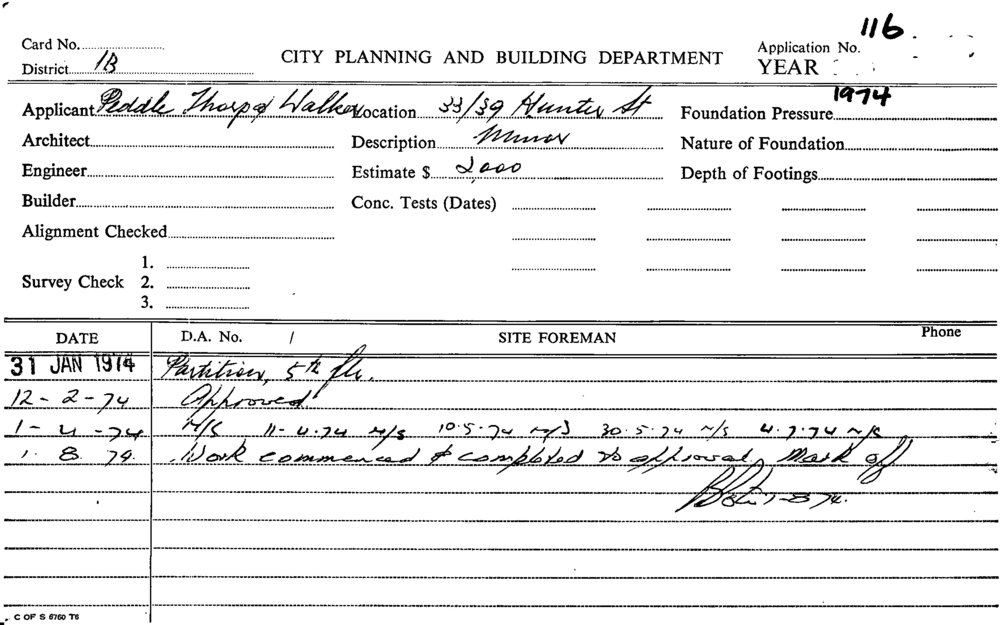 116.
Card No.
CITY PLANNING AND BUILDING DEPARTMENT
Application No.
District 1B
YEAR 1974
Applicant Peddle Thorp & Walker Location 33/39 Hunter St Foundation Pressure
Architect Description Minor Nature of Foundation
Engineer Estimate $ 2,000 Depth of Footings
Builder Conc. Tests (Dates)
Alignment Checked
1.
Survey Check 2.
3.
DATE D.A. No. / SITE FOREMAN Phone
31 JAN 1974 Partition, 5th flr.
12-2-74 Approved
1-4-74 N/S 11-4-74 N/S 10.5.74 N/S 30.5.74 N/S 4.7.74 N/S
1.8.74. Work commenced & completed to approval. Mark off
1-8-74.
C OF S 6760 T6